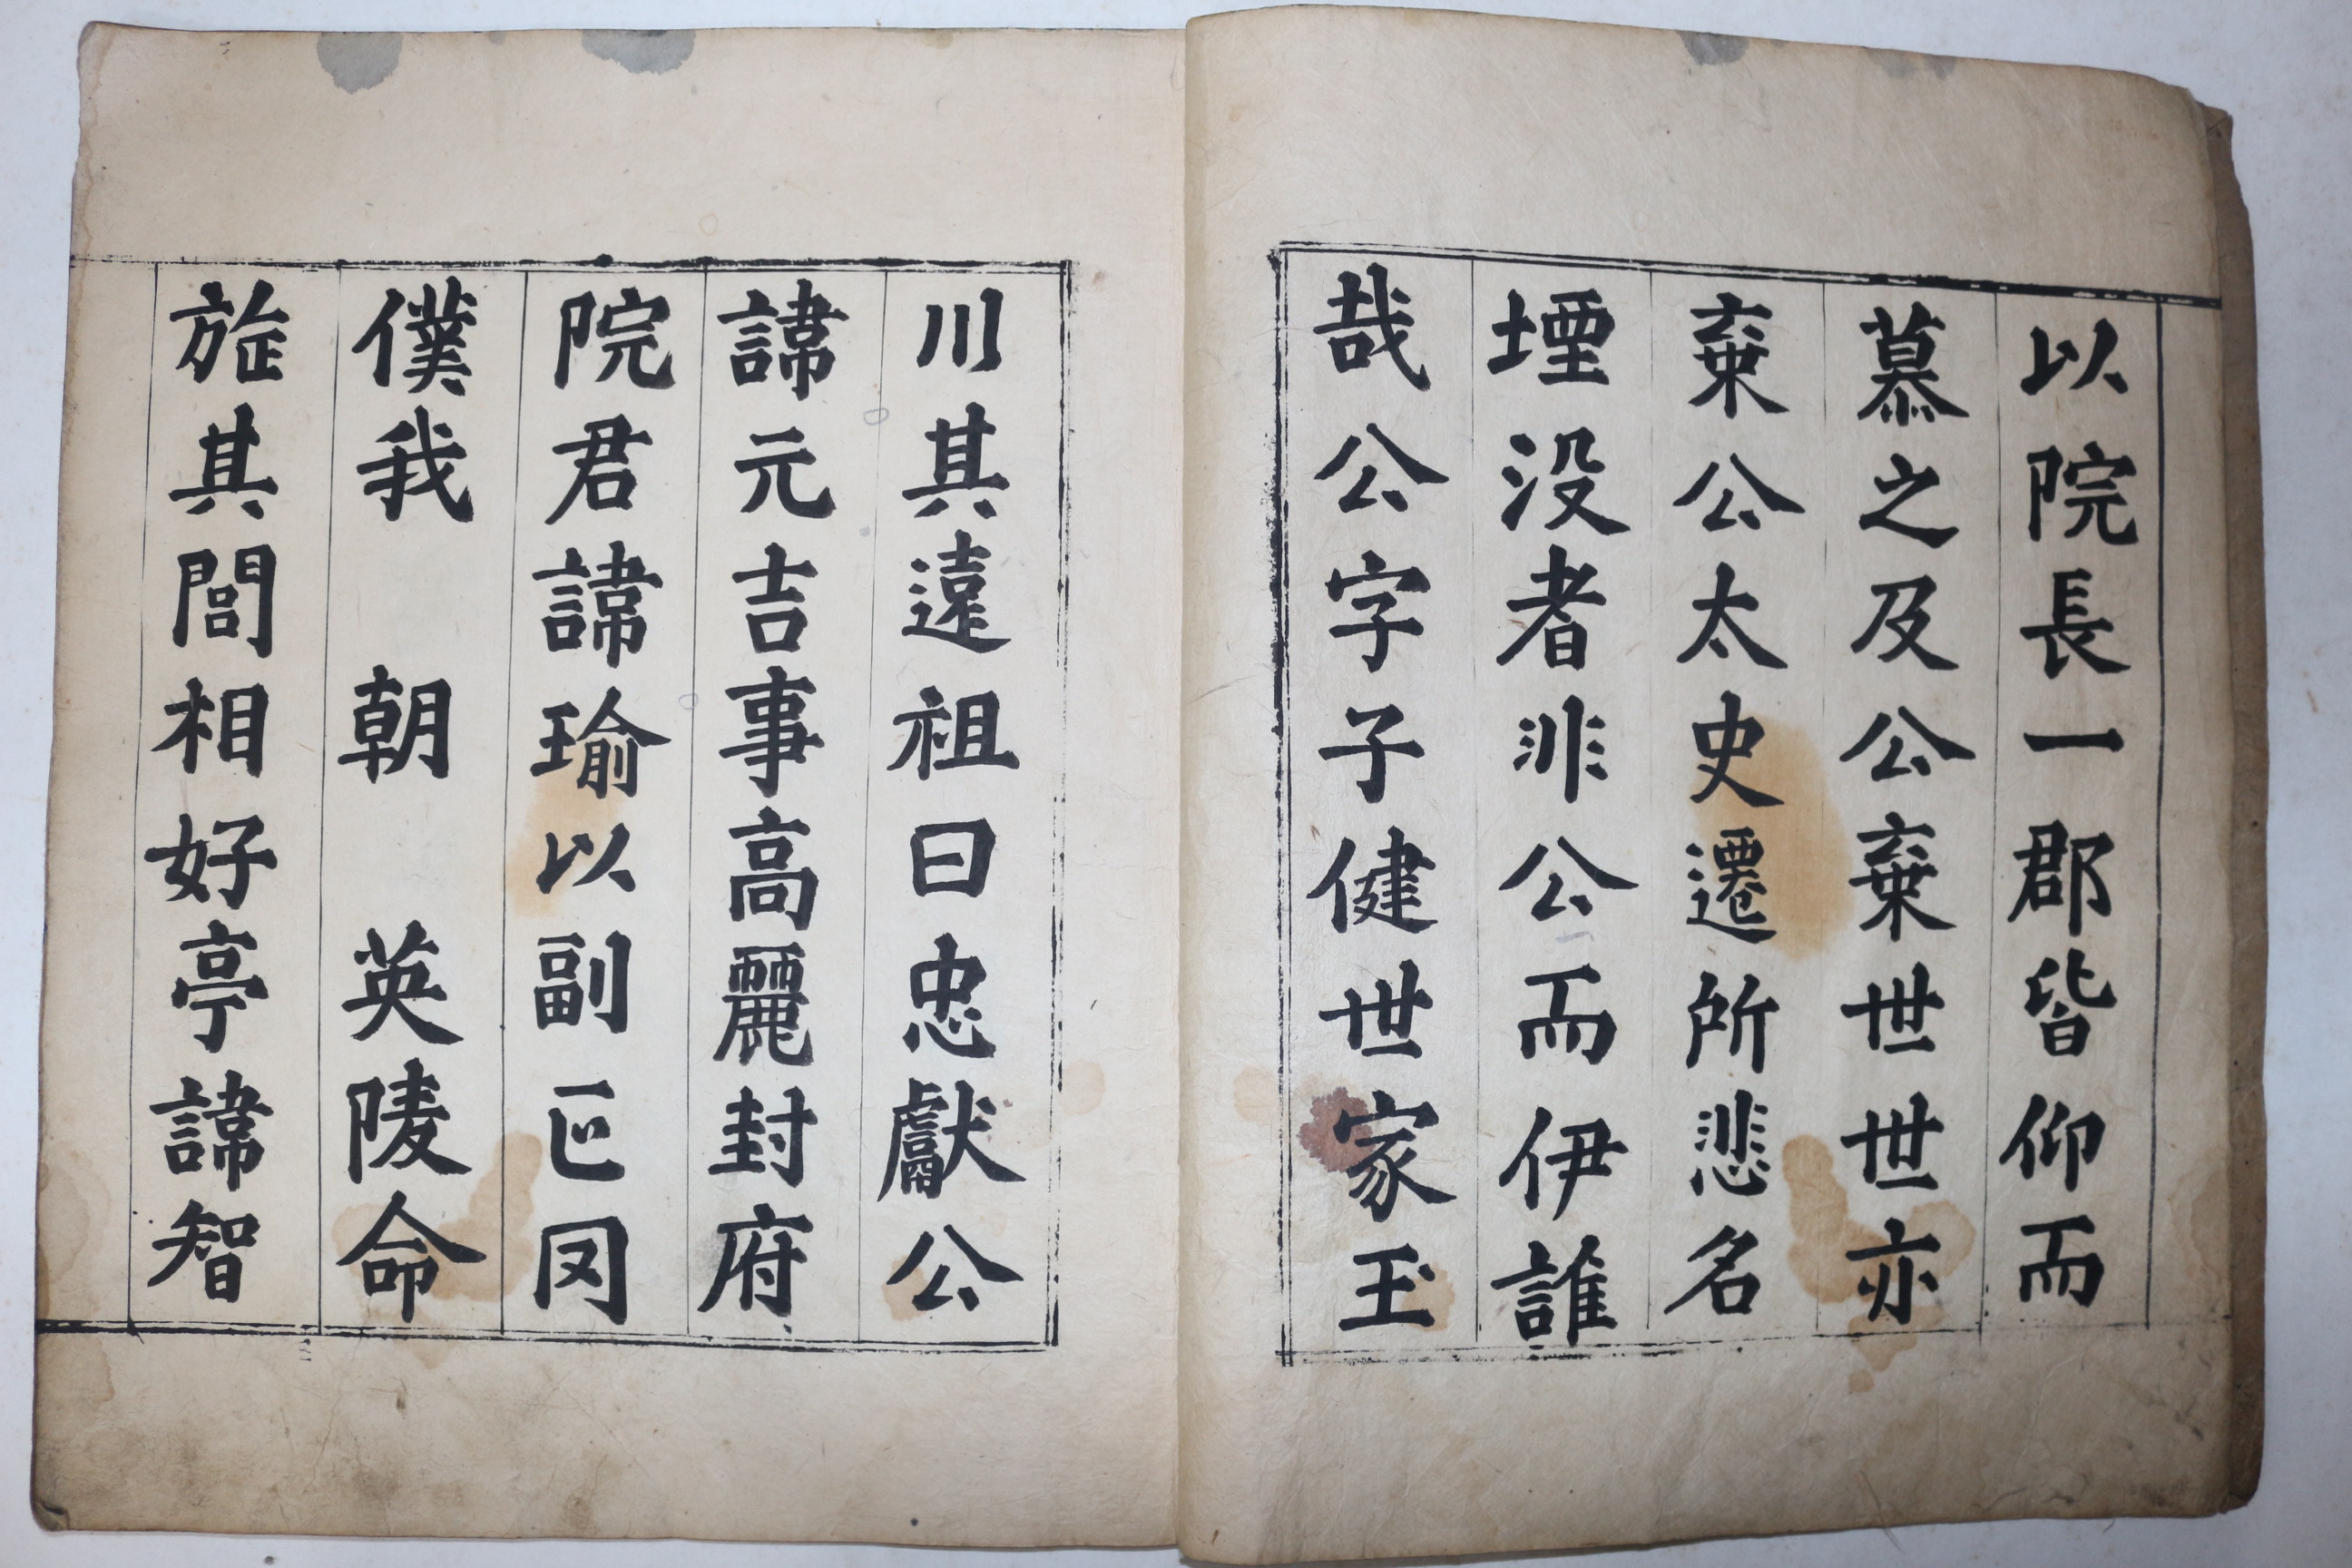 以院長一郡皆仰而
慕之及公棄世世亦
棄公太史遷所悲名
堙没者非公而伊誰
哉公字子健世家玉
川其遠祖曰忠獻公
諱元吉事高麗封府
院君諱瑜以副正罔
僕我 朝 英陵命
旌其閭相好亭諱智